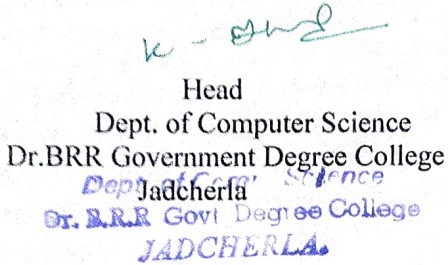 K -
Head
Dept. of Computer Science
Dr.BRR Government Degree College
Jadcherla
Dept. of Com. Science
Dr. B.R.R Govt Degree College
JADCHERLA.